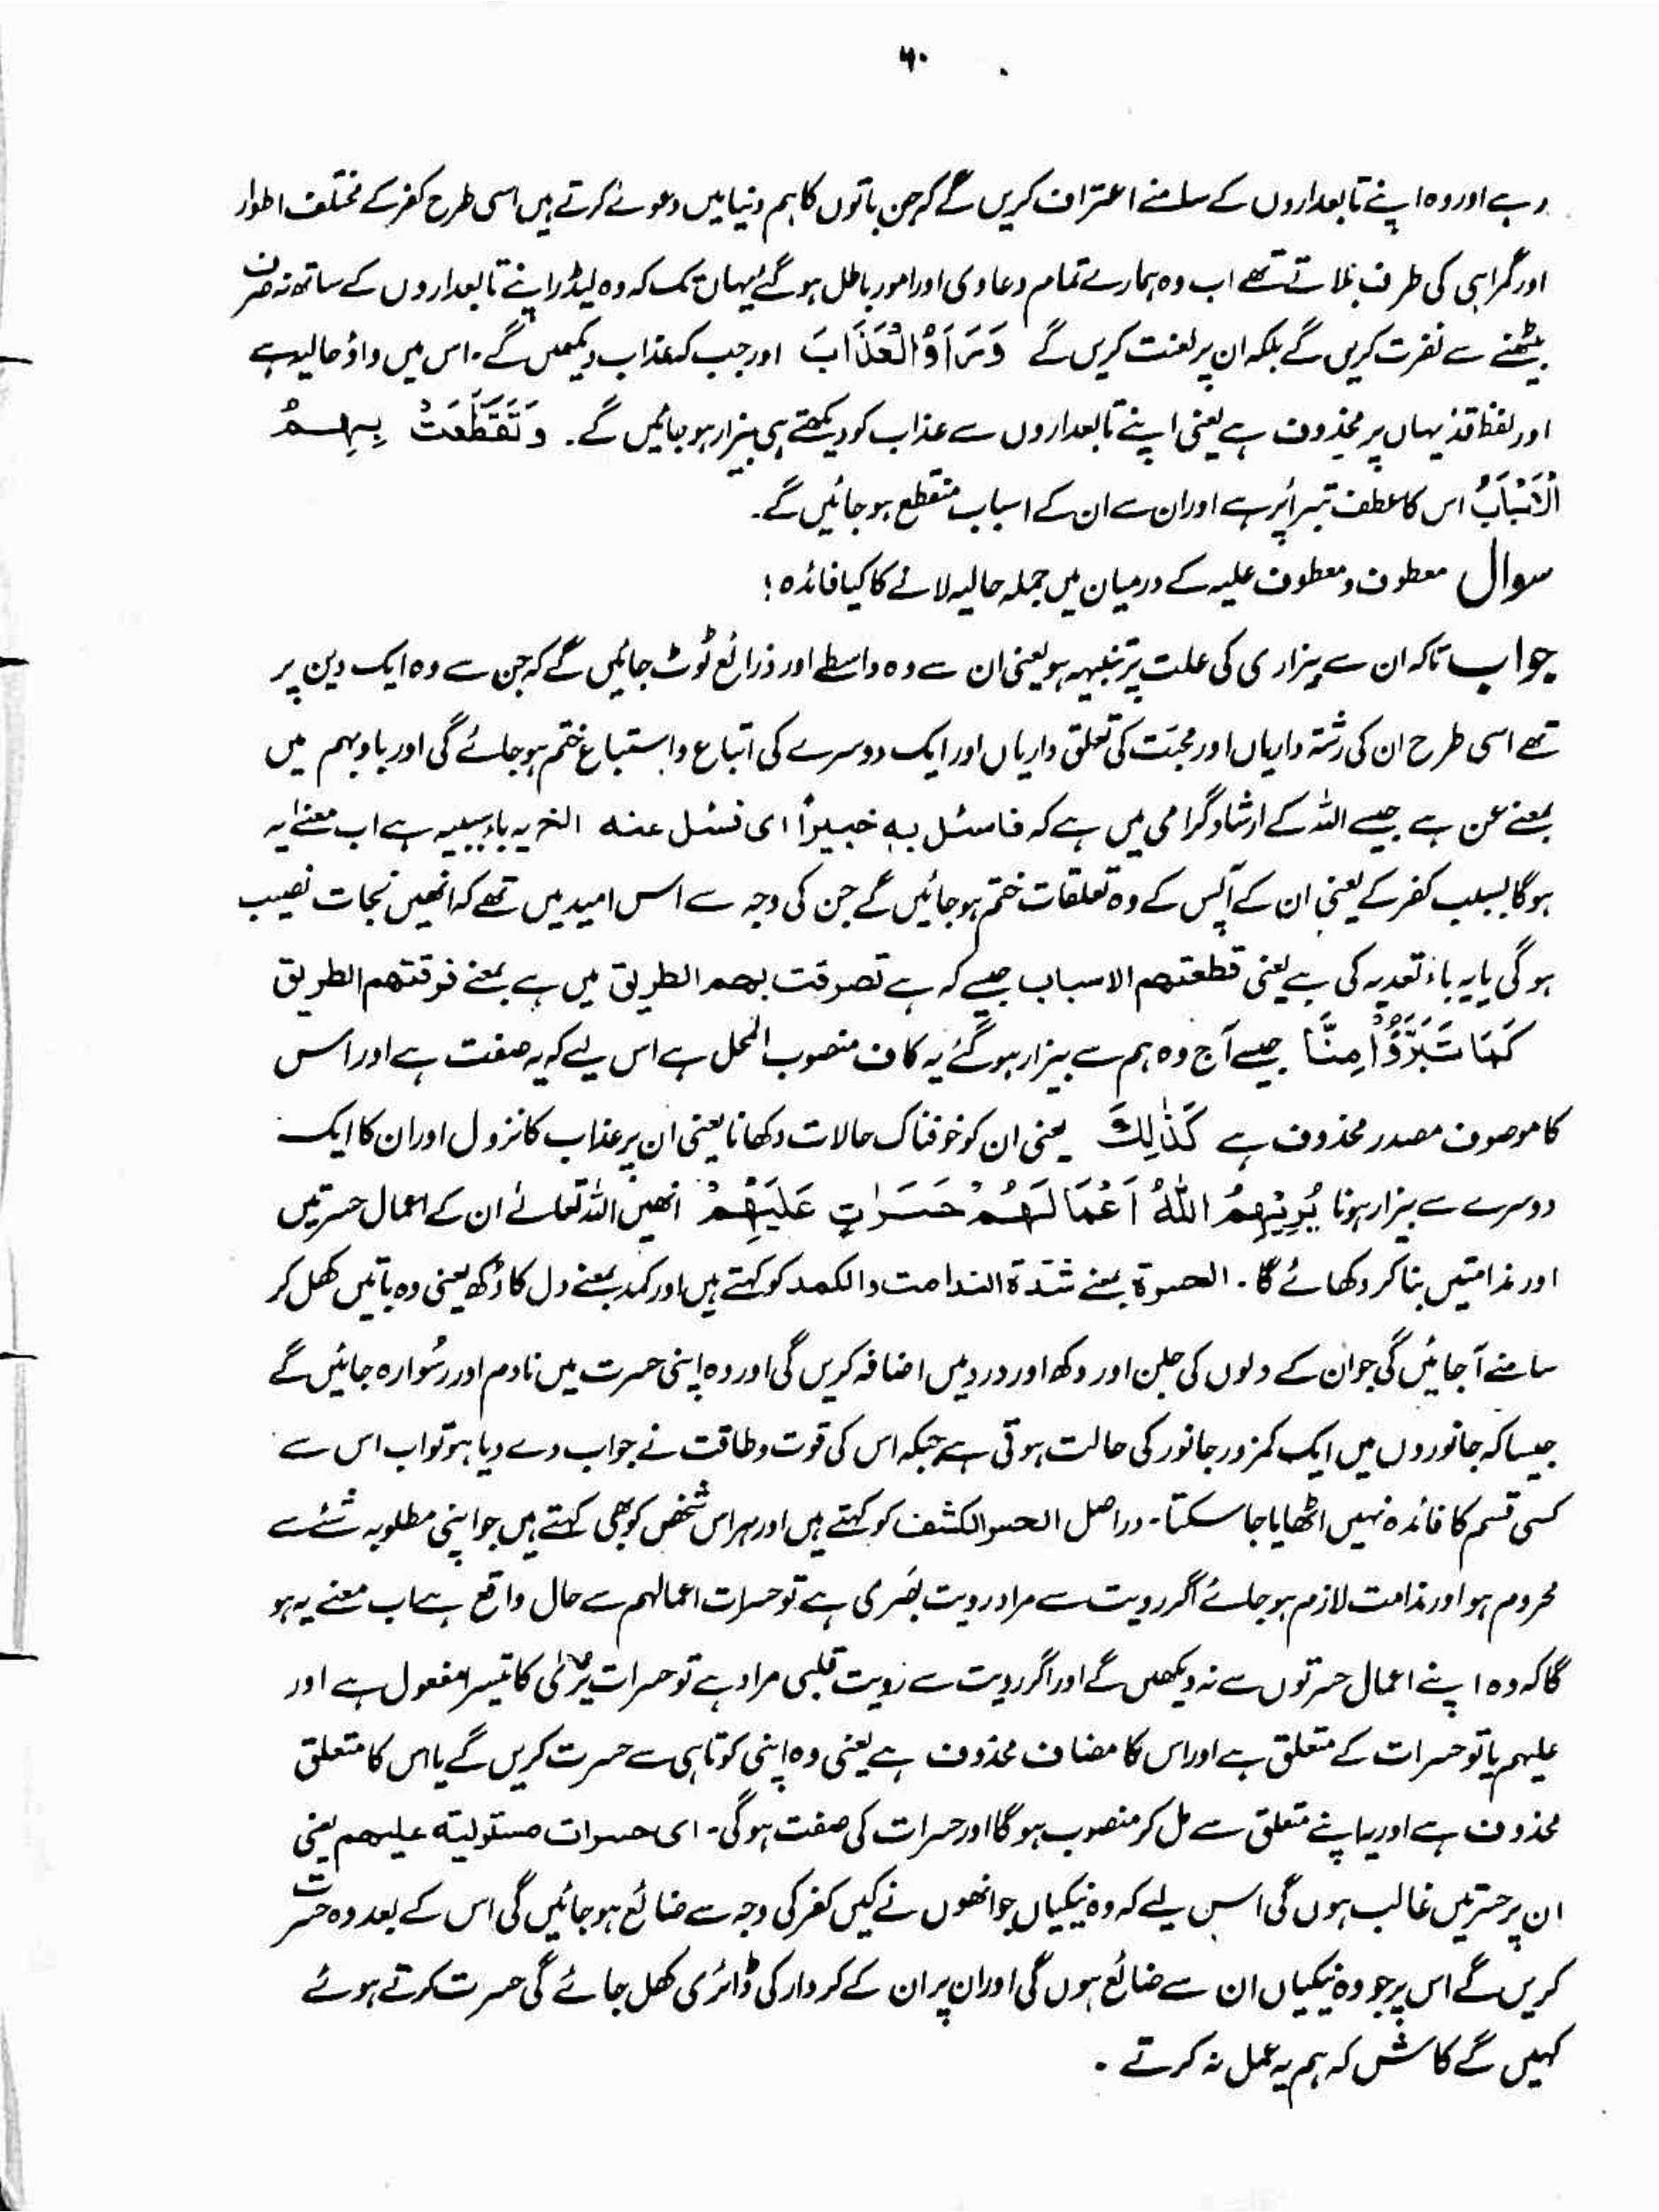 ۶۰
رہے اور وہ اپنے تابعداروں کے سامنے اعتراف کریں گے کہ جن باتوں کا ہم دنیا میں دعوےٰ کرتے ہیں اسی طرح کفر کے مختلف اطوار
اور گمراہی کی طرف بلاتے تھے اب وہ ہمارے تمام دعاوی اور امور باطل ہو گئے یہاں تک کہ وہ لیڈر اپنے تابعداروں کے ساتھ نہ صرف
بیٹھنے سے نفرت کریں گے بلکہ ان پر لعنت کریں گے وَرَاَوُا الْعَذَابَ اور جب کہ عذاب دیکھیں گے۔ اس میں واؤ حالیہ ہے
اور لفظ قد یہاں پر محذوف ہے یعنی اپنے تابعداروں سے عذاب کو دیکھتے ہی بیزار ہو جائیں گے۔ وَتَقَطَّعَتْ بِهِمُ
الْاَسْبَابُ اس کا عطف تبرأ پر ہے اور ان سے ان کے اسباب منقطع ہو جائیں گے۔
سوال معطوف و معطوف علیہ کے درمیان میں جملہ حالیہ لانے کا کیا فائدہ؛
جواب تاکہ ان سے بیزاری کی علت پر تنبیہہ ہو یعنی ان سے وہ واسطے اور ذرائع ٹوٹ جائیں گے کہ جن سے وہ ایک دین پر
تھے اسی طرح ان کی رشتہ داریاں اور محبت کی تعلق داریاں اور ایک دوسرے کی اتباع و استتباع ختم ہو جائے گی اور باء بہم میں
بمعنے عن ہے جیسے اللہ کے ارشاد گرامی میں ہے کہ فاسئل بہ خبیراً ای فسئل عنہ الخ یہ باء سببیہ ہے اب معنےٰ یہ
ہو گا بسبب کفر کے یعنی ان کے آپس کے وہ تعلقات ختم ہو جائیں گے جن کی وجہ سے اس امید میں تھے کہ انھیں نجات نصیب
ہو گی یا یہ باء تعدیہ کی ہے یعنی قطعتهم الاسباب جیسے کہ ہے تصرفت بهم الطریق میں ہے بمعنے فرقتهم الطریق
كَمَا تَبَرَّءُوْا مِنَّا جیسے آج وہ ہم سے بیزار ہو گئے یہ کاف منصوب المحل ہے اس لیے کہ یہ صفت ہے اور اس
کا موصوف مصدر محذوف ہے كَذٰلِكَ یعنی ان کو خوفناک حالات دکھانا یعنی ان پر عذاب کا نزول اور ان کا ایک
دوسرے سے بیزار ہونا يُرِيْهِمُ اللّٰهُ اَعْمَالَهُمْ حَسَرٰتٍ عَلَيْهِمْ انھیں اللہ تعالےٰ ان کے اعمال حسرتیں
اور ندامتیں بنا کر دکھائے گا۔ الحسرۃ بمعنے شدۃ الندامت والکمد کو کہتے ہیں اور کمد بمعنے دل کا دُکھ یعنی وہ باتیں کھل کر
سامنے آ جائیں گی جو ان کے دلوں کی جلن اور دکھ اور درد میں اضافہ کریں گی اور وہ اپنی حسرت میں نادم اور رُسوا رہ جائیں گے
جیسا کہ جانوروں میں ایک کمزور جانور کی حالت ہوتی ہے جبکہ اس کی قوت و طاقت نے جواب دے دیا ہو تو اب اس سے
کسی قسم کا فائدہ نہیں اٹھایا جا سکتا۔ دراصل الحسر الکشف کو کہتے ہیں اور ہر اس شخص کو بھی کہتے ہیں جو اپنی مطلوبہ شئے سے
محروم ہو اور ندامت لازم ہو جائے اگر رویت سے مراد رویت بصری ہے تو حسرات اعمالہم سے حال واقع ہے اب معنے یہ ہو
گا کہ وہ اپنے اعمال حسرتوں سے نہ دیکھیں گے اور اگر رویت سے رویت قلبی مراد ہے تو حسرات یرٰی کا تیسرا مفعول ہے اور
علیہم یا تو حسرات کے متعلق ہے اور اس کا مضاف محذوف ہے یعنی وہ اپنی کوتاہی سے حسرت کریں گے یا اس کا متعلق
محذوف ہے اور یہ اپنے متعلق سے مل کر منصوب ہو گا اور حسرات کی صفت ہو گی۔ ای حسرات مستولیتہ علیهم یعنی
ان پر حسرتیں غالب ہوں گی اس لیے کہ وہ نیکیاں جو انھوں نے کیں کفر کی وجہ سے ضائع ہو جائیں گی اس کے بعد وہ حسرت
کریں گے اس پر جو وہ نیکیاں ان سے ضائع ہوں گی اور ان پر ان کے کردار کی ڈائری کھل جائے گی حسرت کرتے ہوئے
کہیں گے کاش کہ ہم یہ عمل نہ کرتے۔